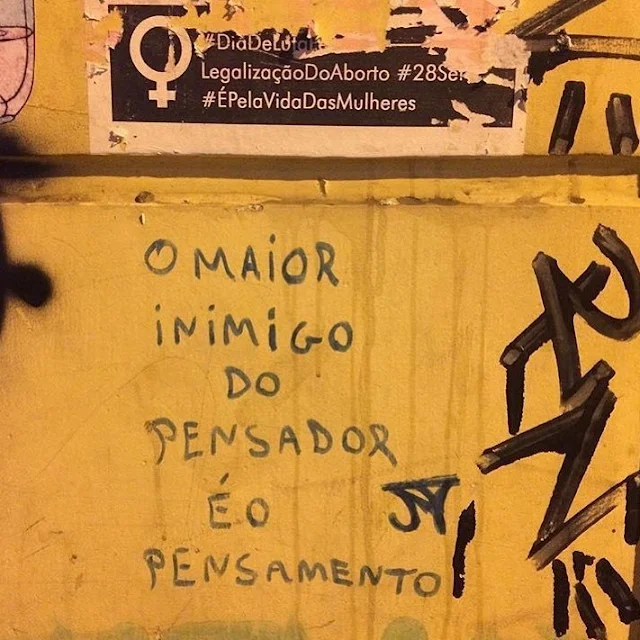 LegalizaçãoDoAborto
#ÉPelaVidaDasMulheres
O MAIOR
INIMIGO
DO
PENSADOR
É O
PENSAMENTO